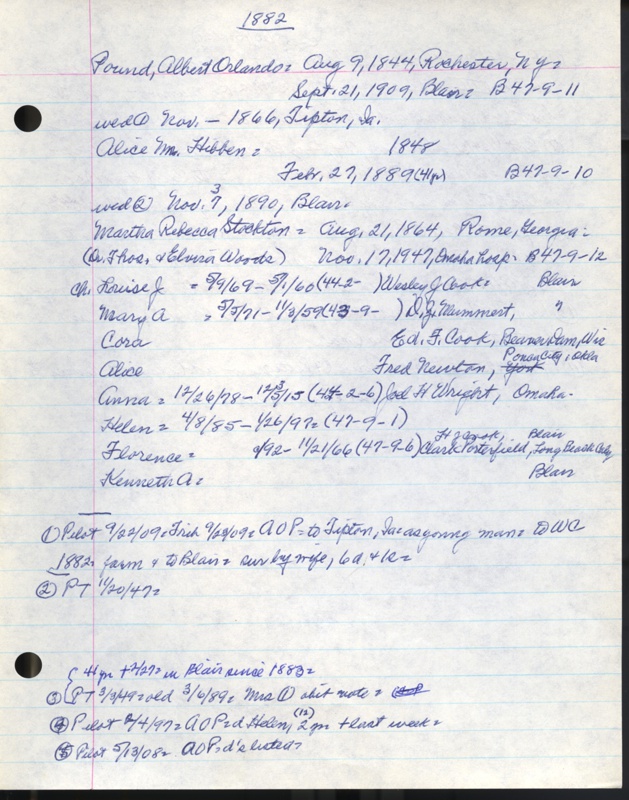 1882
Pound, Albert Orlando= Aug 9, 1844, Rochester, Ny=
Sept. 21, 1909, Blair= B47-9-11
wed① Nov. — 1866, Tipton, Ia.
Alice M. Hibben = 1848
Febr. 27, 1889 (41yr) B47-9-10
wed② Nov. 3, 1890, Blair.
Martha Rebecca Stockton = Aug. 21, 1864, Rome, Georgia=
(D. Thos. & Elvira Woods) Nov. 17, 1947, Omaha Hosp= B47-9-12
ch. Louise J = 5/9/69 – 5/1/60 (44-2- ) Wesley J Cook= Blair
Mary A = 5/5/71 – 11/3/59 (43-9- ) D.Z. Mummert, "
Cora Ed. F. Cook, Beaver Dam, Wis
Alice Fred Newton, Ponca City, Okla
Anna = 12/26/78 – 12/3/15 (44-2-6) Joel H Wright, Omaha.
Helen = 4/8/85 – 1/26/97= (47-9-1)
Florence = /92 – 11/21/66 (47-9-6) Clark Porterfield, Long Beach
Kenneth A= Blair
① Pilot 9/22/09= Trib 9/23/09= AOP= to Tipton, Ia as young man= to WC
1882= farm & to Blair= surv by wife, 6d, & K=
② PT 11/20/47=
{ 41 yr + 2/27= in Blair since 1883=
③ PT 3/3/49= old 3/6/89= Mrs ① obit note=
④ Pilot 2/4/97= AOP=d Helen, (12) 2 yr + last week=
⑤ Pilot 5/13/08= AOP=d's listed=